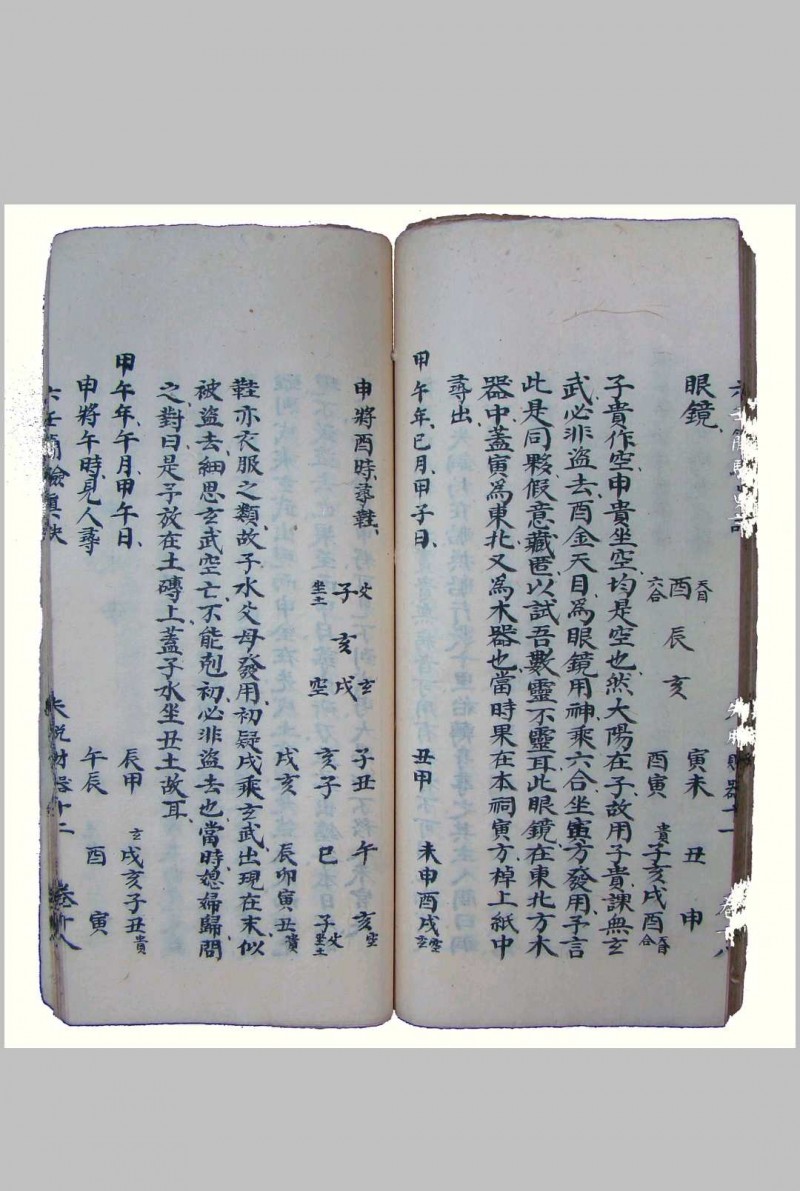 眼鏡
天目
酉 辰 亥
六合
寅未 丑 申
酉寅 貴子亥戌酉 天目 合
子貴作空申貴坐空均是空也然大陽在子故用子貴課無玄
武必非盜去酉金天目為眼鏡用神乘六合坐寅方發用予言
此是同夥假意藏匿以試吾數靈不靈耳此眼鏡在東北方木
器中蓋寅為東北又為木器也當時果在本祠寅方棹上紙中
尋出
甲午年巳月甲子日
丑甲 未申酉戌 空 玄
申將酉時尋鞋
父 玄
子 亥 戌
坐土 空
子丑 午 亥空
亥子 巳 子父坐土
戌亥 辰卯寅丑貴
鞋亦衣服之類故子水父母發用初疑戌乘玄武出現在末似
被盜去細思玄武空亡不能剋初必非盜去也當時媳婦歸問
之對曰是予放在土磚上蓋子水坐丑土故耳
甲午年午月甲午日
辰甲 玄戌亥子丑貴
申將午時見人尋
午辰 酉 寅
六壬簡驗真訣
失脫財器十二 卷廿八